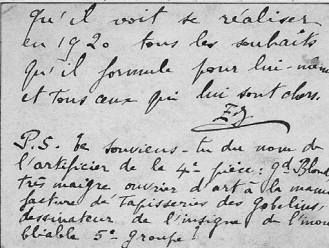 qu'il voit se réaliser
en 1920 tous les souhaits
qu'il formule pour lui-même
et tous ceux qui lui sont chers.
P.S. te souviens-tu du nom de
l'artificier de la 4e pièce : gd Blond
très maigre ouvrier d'art à la manu
facture de Tapisseries des gobelins,
dessinateur de l'insigne de l'inou
bliable 5e groupe !